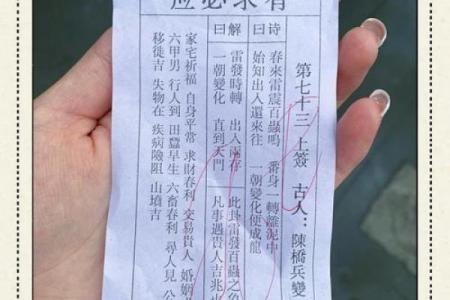 有求必应
第七十三 上簽 古人：陳橋兵變
诗曰
春來雷震百蟲鳴 番身一轉離泥中
始知出入還來往 一朝變化便成龍
解曰
雷發時轉 出入兩存 此卦雷發百蟲之象
一朝變化 直到天門 凡事遇貴人吉兆也
家宅祈福 自身平常 求財春利 交易貴人 婚姻
六甲男 行人到 田蠶早生 六畜春利 尋人見 公
移徙吉 失物在 疾病險阻 山墳吉